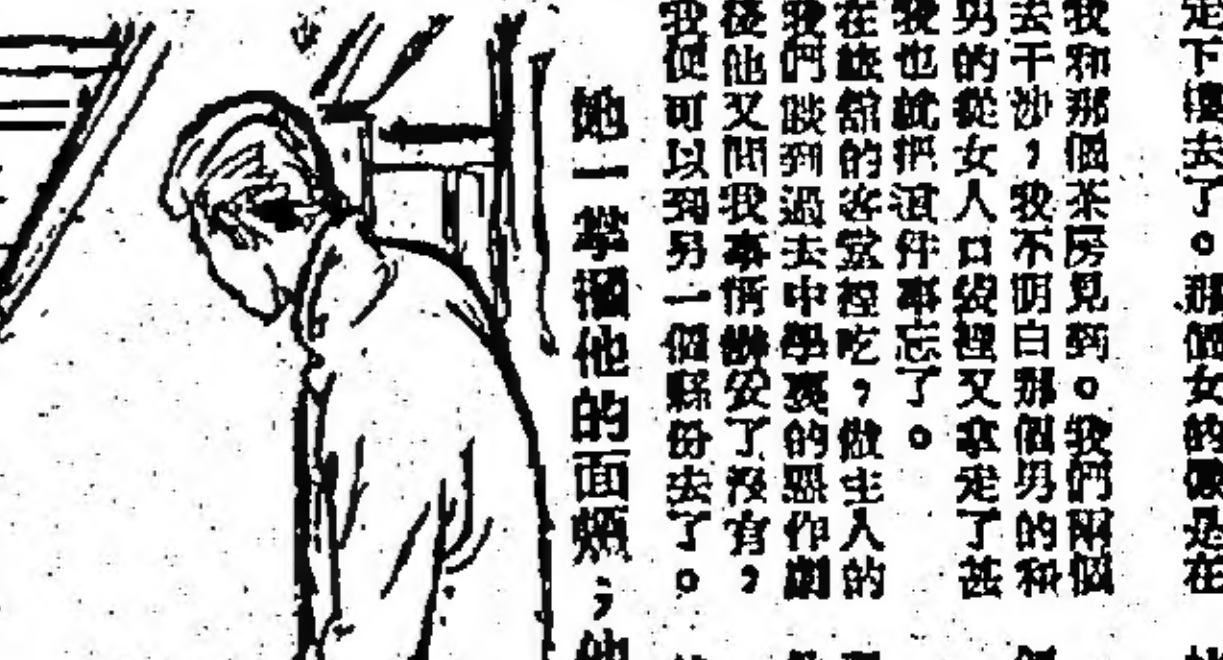 走下樓去了。那個女的像是在
我和那個茶房見到。我們兩個
去干涉,我不明白那個男的和
男的從女人口袋裡又拿走了甚
我也就把這件事忘了。
在旅館的客堂裡吃,做主人的
我們談到過去中學裏的惡作劇
後他又問我事情辦妥了沒有,
我便可以到另一個縣份去了。
她一掌摑他的面頰;他